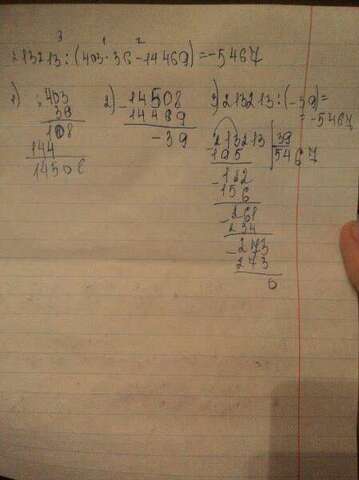 3 1 2
213213:(403·36-14469)=-5467
1) 403
36
108
144
14508
2) -14508
14469
-39
3) 213213:(-39)=
=-5467
-213213 |39
195 5467
-182
156
-268
234
-273
273
0